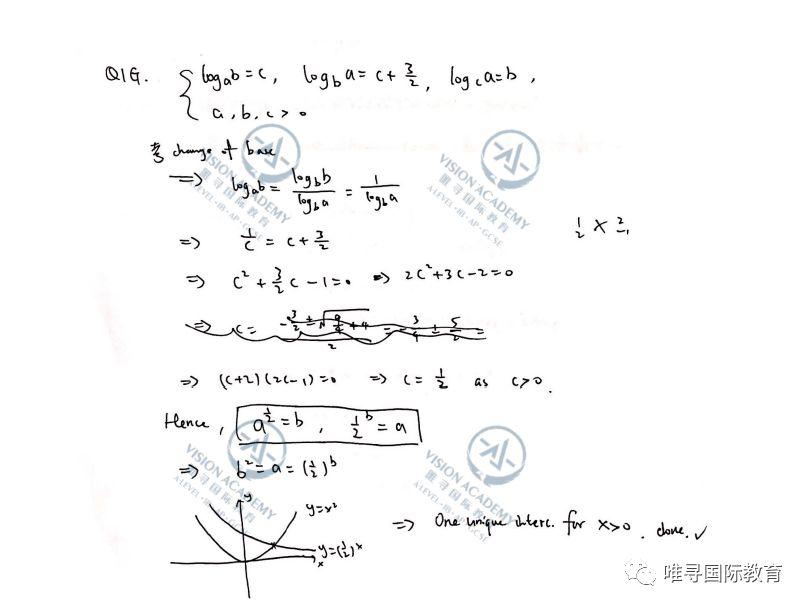 Q1G. { log_a b = c, log_b a = c + 3/2, log_c a = b,
a, b, c > 0
change of base
⇒ log_a b = log_b b / log_b a = 1 / log_b a
⇒ 1/c = c + 3/2
1/2 X 2/-1
⇒ c² + 3/2 c - 1 = 0 ⇒ 2c² + 3c - 2 = 0
⇒ (c+2)(2c-1) = 0 ⇒ c = 1/2 as c > 0.
Hence, a^(1/2) = b, 1/2^b = a
⇒ b² = a = (1/2)^b
y
y = x²
y = (1/2)^x
x
⇒ One unique interc. for x > 0. done. ✓
VISION ACADEMY
唯寻国际教育
A-LEVEL·IB·AP·GCSE
VISION ACADEMY
唯寻国际教育
A-LEVEL·IB·AP·GCSE
VISION ACADEMY
唯寻国际教育
A-LEVEL·IB·AP·GCSE
VISION ACADEMY
唯寻国际教育
A-LEVEL·IB·AP·GCSE
唯寻国际教育